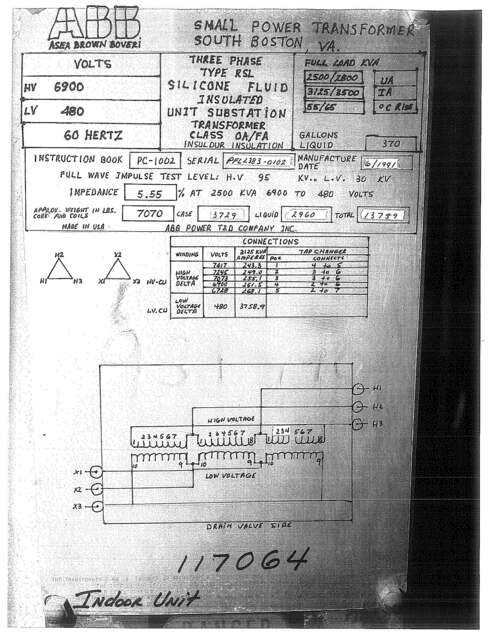 ABB
ASEA BROWN BOVERI
SMALL POWER TRANSFORMER
SOUTH BOSTON, VA.
VOLTS
HV 6900
LV 480
60 HERTZ
THREE PHASE
TYPE RSL
SILICONE FLUID
INSULATED
UNIT SUBSTATION
TRANSFORMER
CLASS OA/FA
INSULDUR INSULATION
FULL LOAD KVA
2500/2800 UA
3125/3500 IA
55/65 °C RISE
GALLONS
LIQUID 370
INSTRUCTION BOOK PC-1002 SERIAL PFL2383-0102 MANUFACTURE DATE 6/1991
FULL WAVE IMPULSE TEST LEVEL: H.V 95 KV., L.V. 30 KV
IMPEDANCE 5.55 % AT 2500 KVA 6900 TO 480 VOLTS
APPROX. WEIGHT IN LBS.
CORE AND COILS 7070 CASE 3729 LIQUID 2960 TOTAL 13759
MADE IN USA ABB POWER T&D COMPANY INC.
CONNECTIONS
WINDING VOLTS 3125 KVA AMPERES POS TAP CHANGER CONNECTS
HIGH VOLTAGE DELTA
7417 243.3 1 4 to 5
7245 249.0 2 3 to 5
7073 255.1 3 3 to 6
6900 261.5 4 2 to 6
6728 268.1 5 2 to 7
LOW VOLTAGE DELTA 480 3758.9
H2
H1 H3
X2
X1 X3
HV-CU
LV.CU
H1
H2
H3
HIGH VOLTAGE
234567 1 34567 18 234 567 18
10 9 10 9 10 9
X1
X2
X3
LOW VOLTAGE
DRAIN VALVE SIDE
117064
Indoor Unit
DANGER